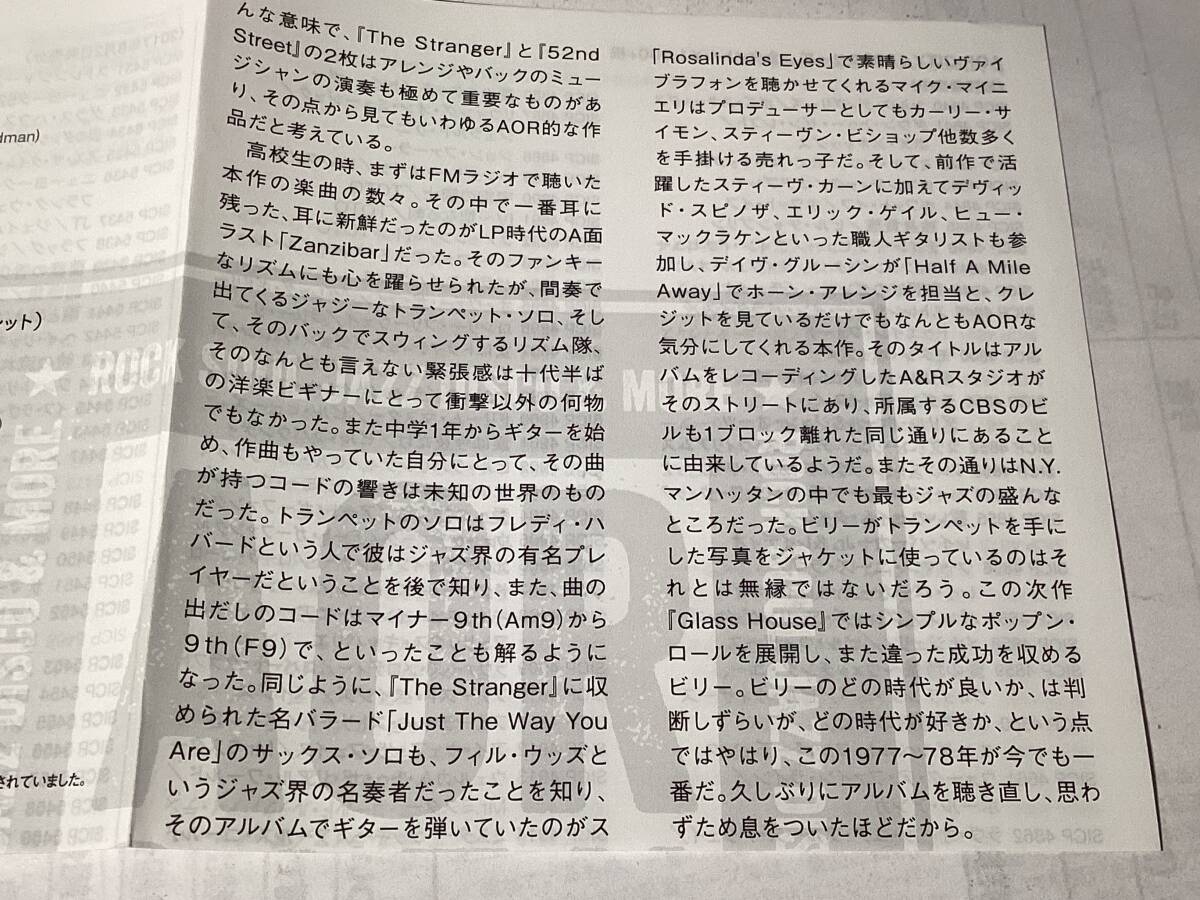 んな意味で、『The Stranger』と『52nd
Street』の2枚はアレンジやバックのミュー
ジシャンの演奏も極めて重要なものがあ
り、その点から見てもいわゆるAOR的な作
品だと考えている。
高校生の時、まずはFMラジオで聴いた
本作の楽曲の数々。その中で一番耳に
残った、耳に新鮮だったのがLP時代のA面
ラスト「Zanzibar」だった。そのファンキー
なリズムにも心を躍らせられたが、間奏で
出てくるジャジーなトランペット・ソロ、そし
て、そのバックでスウィングするリズム隊、
そのなんとも言えない緊張感は十代半ば
の洋楽ビギナーにとって衝撃以外の何物
でもなかった。また中学1年からギターを始
め、作曲もやっていた自分にとって、その曲
が持つコードの響きは未知の世界のもの
だった。トランペットのソロはフレディ・ハ
バードという人で彼はジャズ界の有名プレ
イヤーだということを後で知り、また、曲の
出だしのコードはマイナー9th(Am9)から
9th(F9)で、といったことも解るように
なった。同じように、『The Stranger』に収
められた名バラード「Just The Way You
Are」のサックス・ソロも、フィル・ウッズと
いうジャズ界の名奏者だったことを知り、
そのアルバムでギターを弾いていたのがス
「Rosalinda's Eyes」で素晴らしいヴァイ
ブラフォンを聴かせてくれるマイク・マイニ
エリはプロデューサーとしてもカーリー・サ
イモン、スティーヴン・ビショップ他数多く
を手掛ける売れっ子だ。そして、前作で活
躍したスティーヴ・カーンに加えてデヴィッ
ド・スピノザ、エリック・ゲイル、ヒュー・
マックラケンといった職人ギタリストも参
加し、デイヴ・グルーシンが「Half A Mile
Away」でホーン・アレンジを担当と、クレ
ジットを見ているだけでもなんともAORな
気分にしてくれる本作。そのタイトルはアル
バムをレコーディングしたA&Rスタジオが
そのストリートにあり、所属するCBSのビ
ルも1ブロック離れた同じ通りにあること
に由来しているようだ。またその通りはN.Y.
マンハッタンの中でも最もジャズの盛んな
ところだった。ビリーがトランペットを手に
した写真をジャケットに使っているのはそ
れとは無縁ではないだろう。この次作
『Glass House』ではシンプルなポップン・
ロールを展開し、また違った成功を収める
ビリー。ビリーのどの時代が良いか、は判
断しずらいが、どの時代が好きか、という点
ではやはり、この1977〜78年が今でも一
番だ。久しぶりにアルバムを聴き直し、思わ
ずため息をついたほどだから。
dman)
ット)
されていました。
★ ROCK
MORE